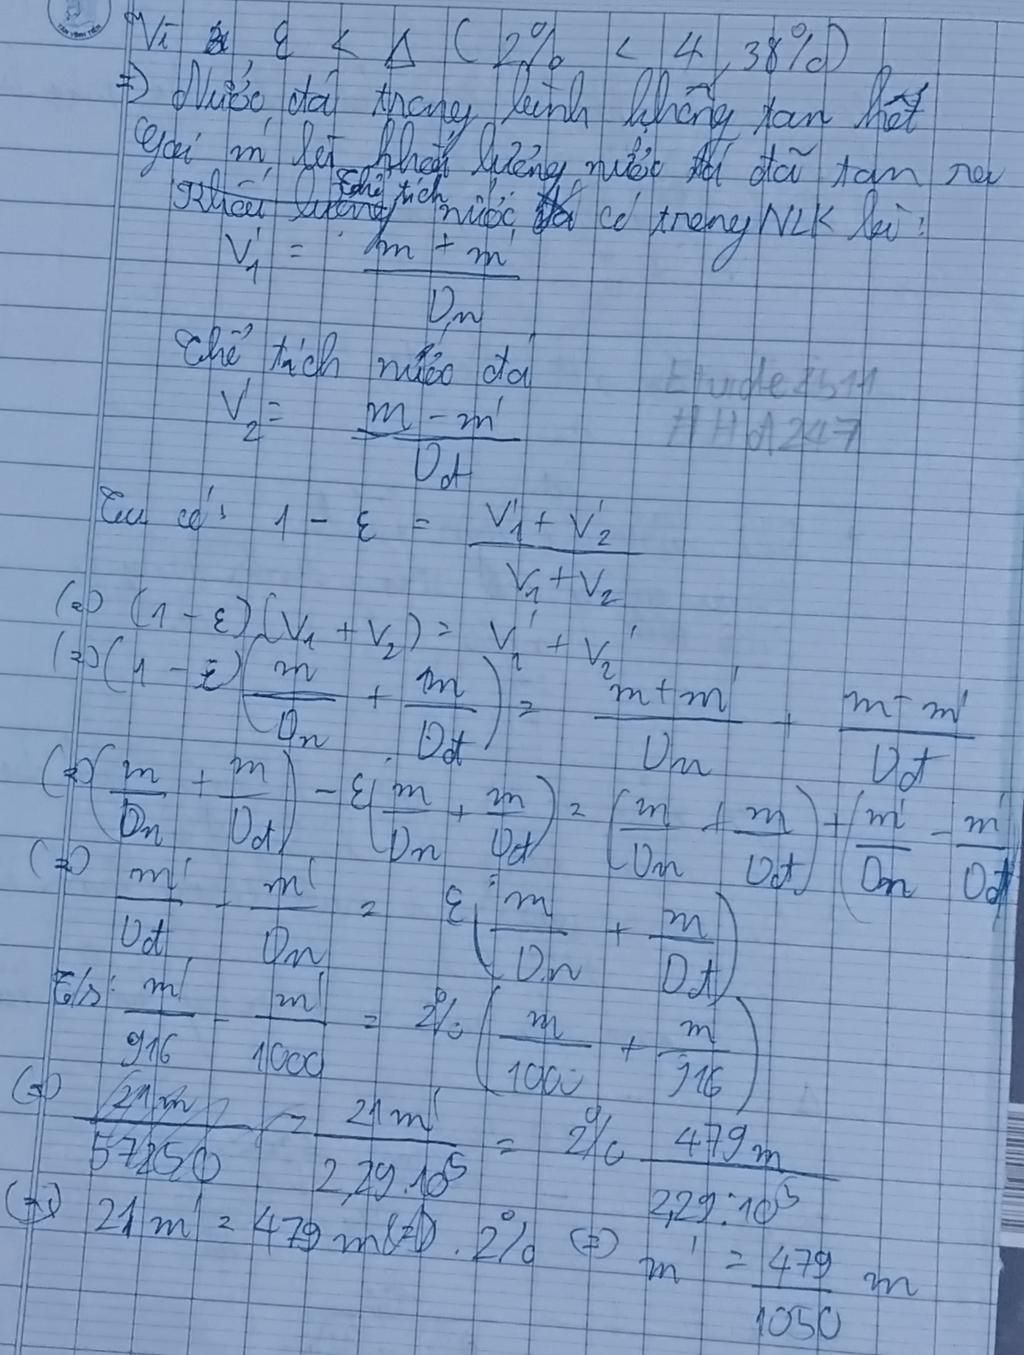 Vì ε < Δ ( 2% < 4,38%)
=> Nước đá trong bình không tan hết
Gọi m' là khối lượng nước đá đã tan ra
Thể tích nước có trong NLK là:
V₁' = (m + m') / Dn
Thể tích nước đá
V₂' = (m - m') / Dđ
Etude2511
HHA247
Ta có: 1 - ε = (V₁' + V₂') / (V₁ + V₂)
(=) (1 - ε)(V₁ + V₂) = V₁' + V₂'
(=) (1 - ε)(m/Dn + m/Dđ) = (m + m')/Dn + (m - m')/Dđ
(=) (m/Dn + m/Dđ) - ε(m/Dn + m/Dđ) = (m/Dn + m/Dđ) + (m'/Dn - m'/Dđ
(=) m'/Dđ - m'/Dn = ε(m/Dn + m/Dđ)
T/s: m'/916 - m'/1000 = 2% (m/1000 + m/916)
(=) 21m'/2,29.10⁵ = 2% 479m/2,29.10⁵
(=) 21m' = 479m . 2% (=) m' = 479/1050 m